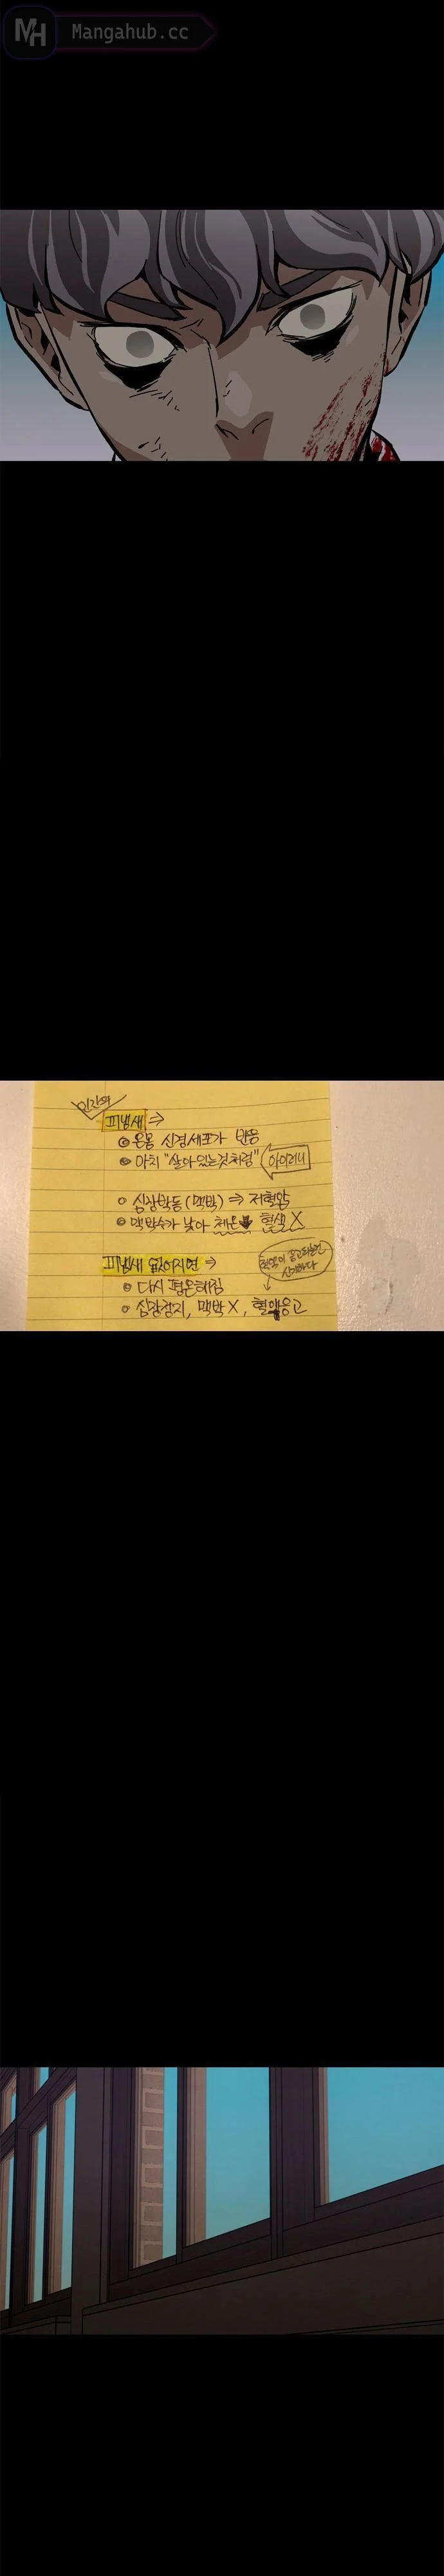 MH Mangahub.cc
인간의
피냄새 ⇒
온몸 신경세포가 반응
아치 "살아있는것처럼" 아이러니
심장박동 (맥박) ⇒ 저혈압
맥박수가 낮아 체온↓ 혈색 X
피냄새 없어지면 ⇒
신기하다
다시 평온해짐
심장정지, 맥박 X, 혈액응고